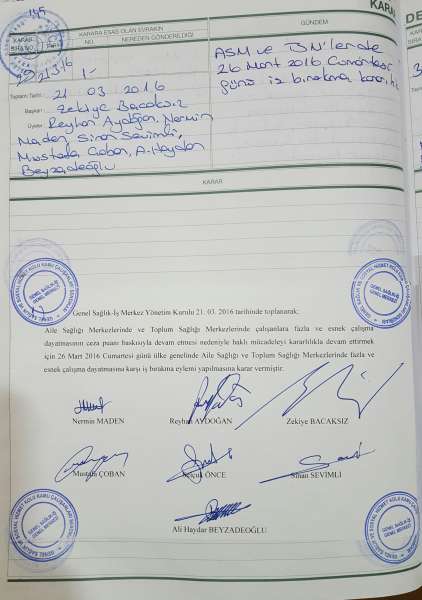 145
KARAR
KARAR SIRA NO
KARARA ESAS OLAN EVRAKIN
NO.
NEREDEN GÖNDERİLDİĞİ
GÜNDEM
21316
1-
Toplantı Tarihi : 21 03 2016
Başkan : Zekiye Bacaksız
Üyeler : Reyhan Aydoğan, Nermin
Maden, Sinan Sevimli,
Mustafa Çoban, A. Haydar
Beyzadeoğlu
ASM ve TSM'lerde
26 Mart 2016 Cumartesi
günü iş bırakma kararı
KARAR
Genel Sağlık-İş Merkez Yönetim Kurulu 21. 03. 2016 tarihinde toplanarak;
Aile Sağlığı Merkezlerinde ve Toplum Sağlığı Merkezlerinde çalışanlara fazla ve esnek çalışma
dayatmasının ceza puanı baskısıyla devam etmesi nedeniyle haklı mücadeleyi kararlılıkla devam ettirmek
için 26 Mart 2016 Cumartesi günü ülke genelinde Aile Sağlığı ve Toplum Sağlığı Merkezlerinde fazla ve
esnek çalışma dayatmasına karşı iş bırakma eylemi yapılmasına karar vermiştir.
Nermin MADEN
Reyhan AYDOĞAN
Zekiye BACAKSIZ
Mustafa ÇOBAN
Selçuk ÖNCE
Sinan SEVİMLİ
Ali Haydar BEYZADEOĞLU
GENEL SAĞLIK-İŞ
GENEL MERKEZİ